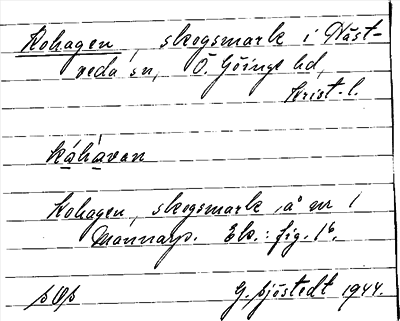 Kohagen, skogsmark i Häst-
veda sn, Ö. Göinge hd,
Krist. l.
kåhåvan
Kohagen, skogsmark å nr 1
Mannarp. Ek.: fig. 16.
G. Sjöstedt 1944.